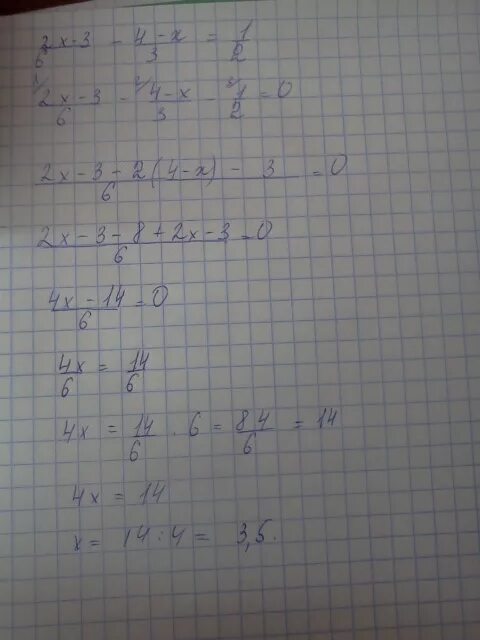 2x-3/6 - 4-x/3 = 1/2
1/ 2x-3/6 - 2/ 4-x/3 - 3/ 1/2 = 0
2x-3-2(4-x)-3/6 = 0
2x-3-8+2x-3/6 = 0
4x-14/6 = 0
4x/6 = 14/6
4x = 14/6 · 6 = 84/6 = 14
4x = 14
x = 14:4 = 3,5.